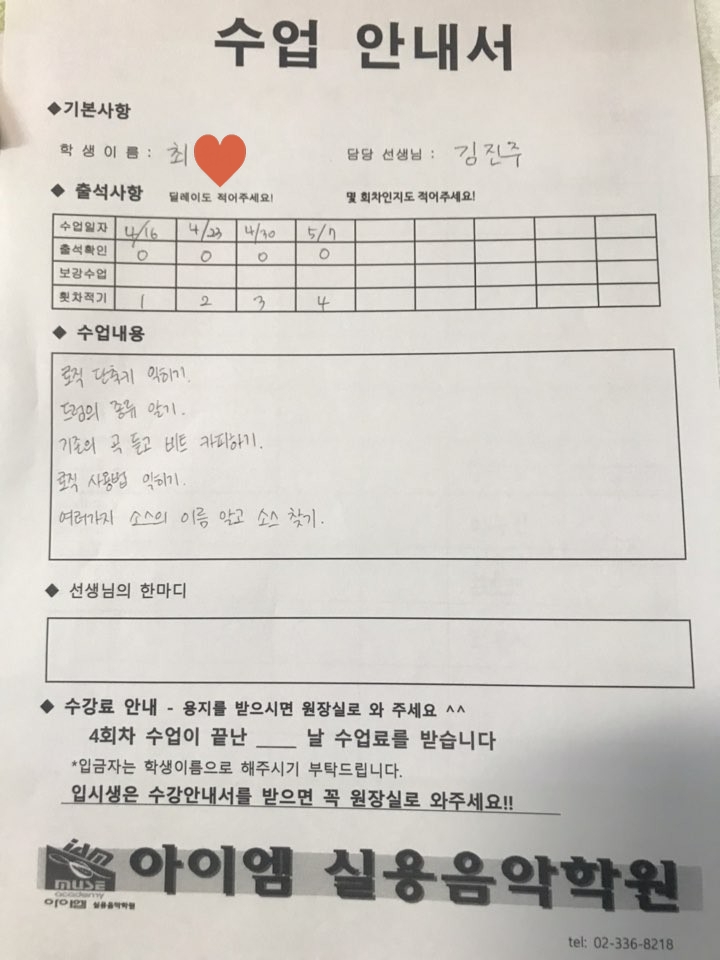 수업 안내서
◆기본사항
학 생 이 름 : 최 담당 선생님 : 김진주
◆ 출석사항 딜레이도 적어주세요! 몇 회차인지도 적어주세요!
수업일자 4/16 4/23 4/30 5/7
출석확인 O O O O
보강수업
횟차적기 1 2 3 4
◆ 수업내용
로직 단축키 익히기.
드럼의 종류 알기.
기존의 곡 듣고 비트 카피하기.
로직 사용법 익히기.
여러가지 소스의 이름 알고 소스 찾기.
◆ 선생님의 한마디
◆ 수강료 안내 - 용지를 받으시면 원장실로 와 주세요 ^^
4회차 수업이 끝난 ____ 날 수업료를 받습니다
*입금자는 학생이름으로 해주시기 부탁드립니다.
입시생은 수강안내서를 받으면 꼭 원장실로 와주세요!!
idm
MUSE
academy
아이엠 실용음악학원
아이엠 실용음악학원
tel: 02-336-8218